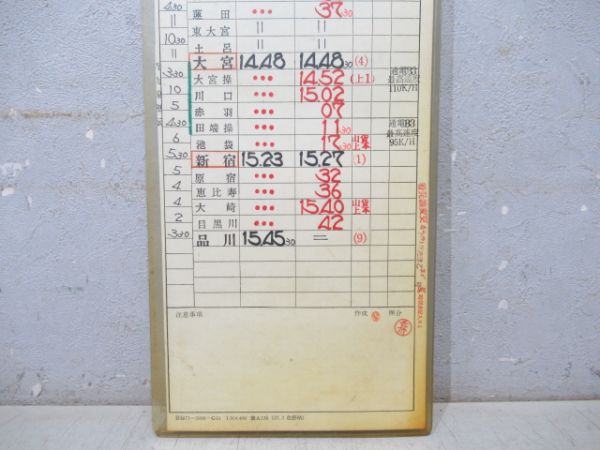 430 蓮田 37 30
〃 東大宮 = =
1030 土呂 = =
大宮 14.48 14.48 30 (4)
330 大宮操 ••• 14.52 (上1) 通電B1 最高速度 110K/H
10 川口 ••• 15.02
5 赤羽 ••• 07
430 田端操 ••• 11 30 通電B3 最高速度 95K/H
6 池袋 ••• 17 30 山貨上本
530 新宿 15.23 15.27 (1)
5 原宿 ••• 32
4 恵比寿 ••• 36
4 大崎 ••• 15.40 山貨上本
2 目黒川 ••• 42
330 品川 15.45 30 = (9)
注意事項 作成 照合